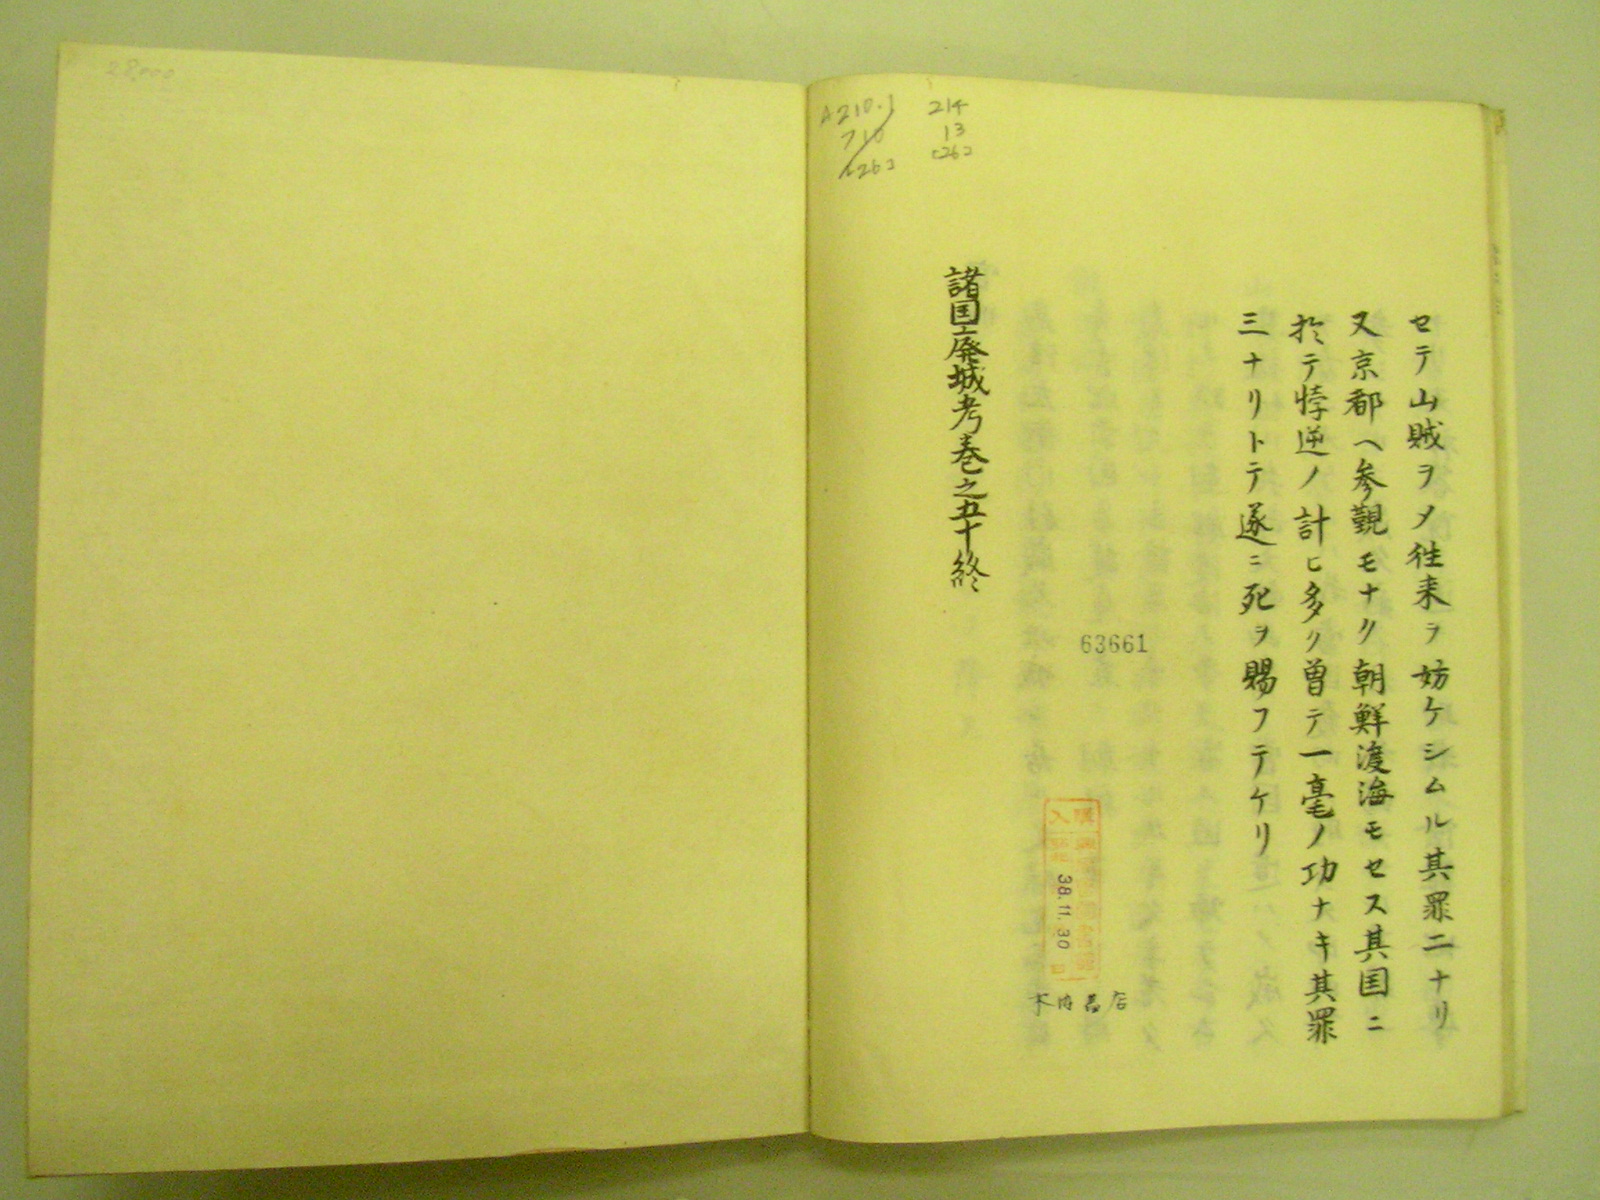 セテ山賊ヲメ徃来ヲ妨ケシムル其罪二ナリ
又京都ヘ参覲モナク朝鮮渡海モセス其国ニ
於テ悖逆ノ計ヒ多ク曽テ一毫ノ功ナキ其罪
三ナリトテ遂ニ死ヲ賜フテケリ
諸国廃城考巻之五十終
63661
38.11.30
A210.1
710
214
13
c262
28,000